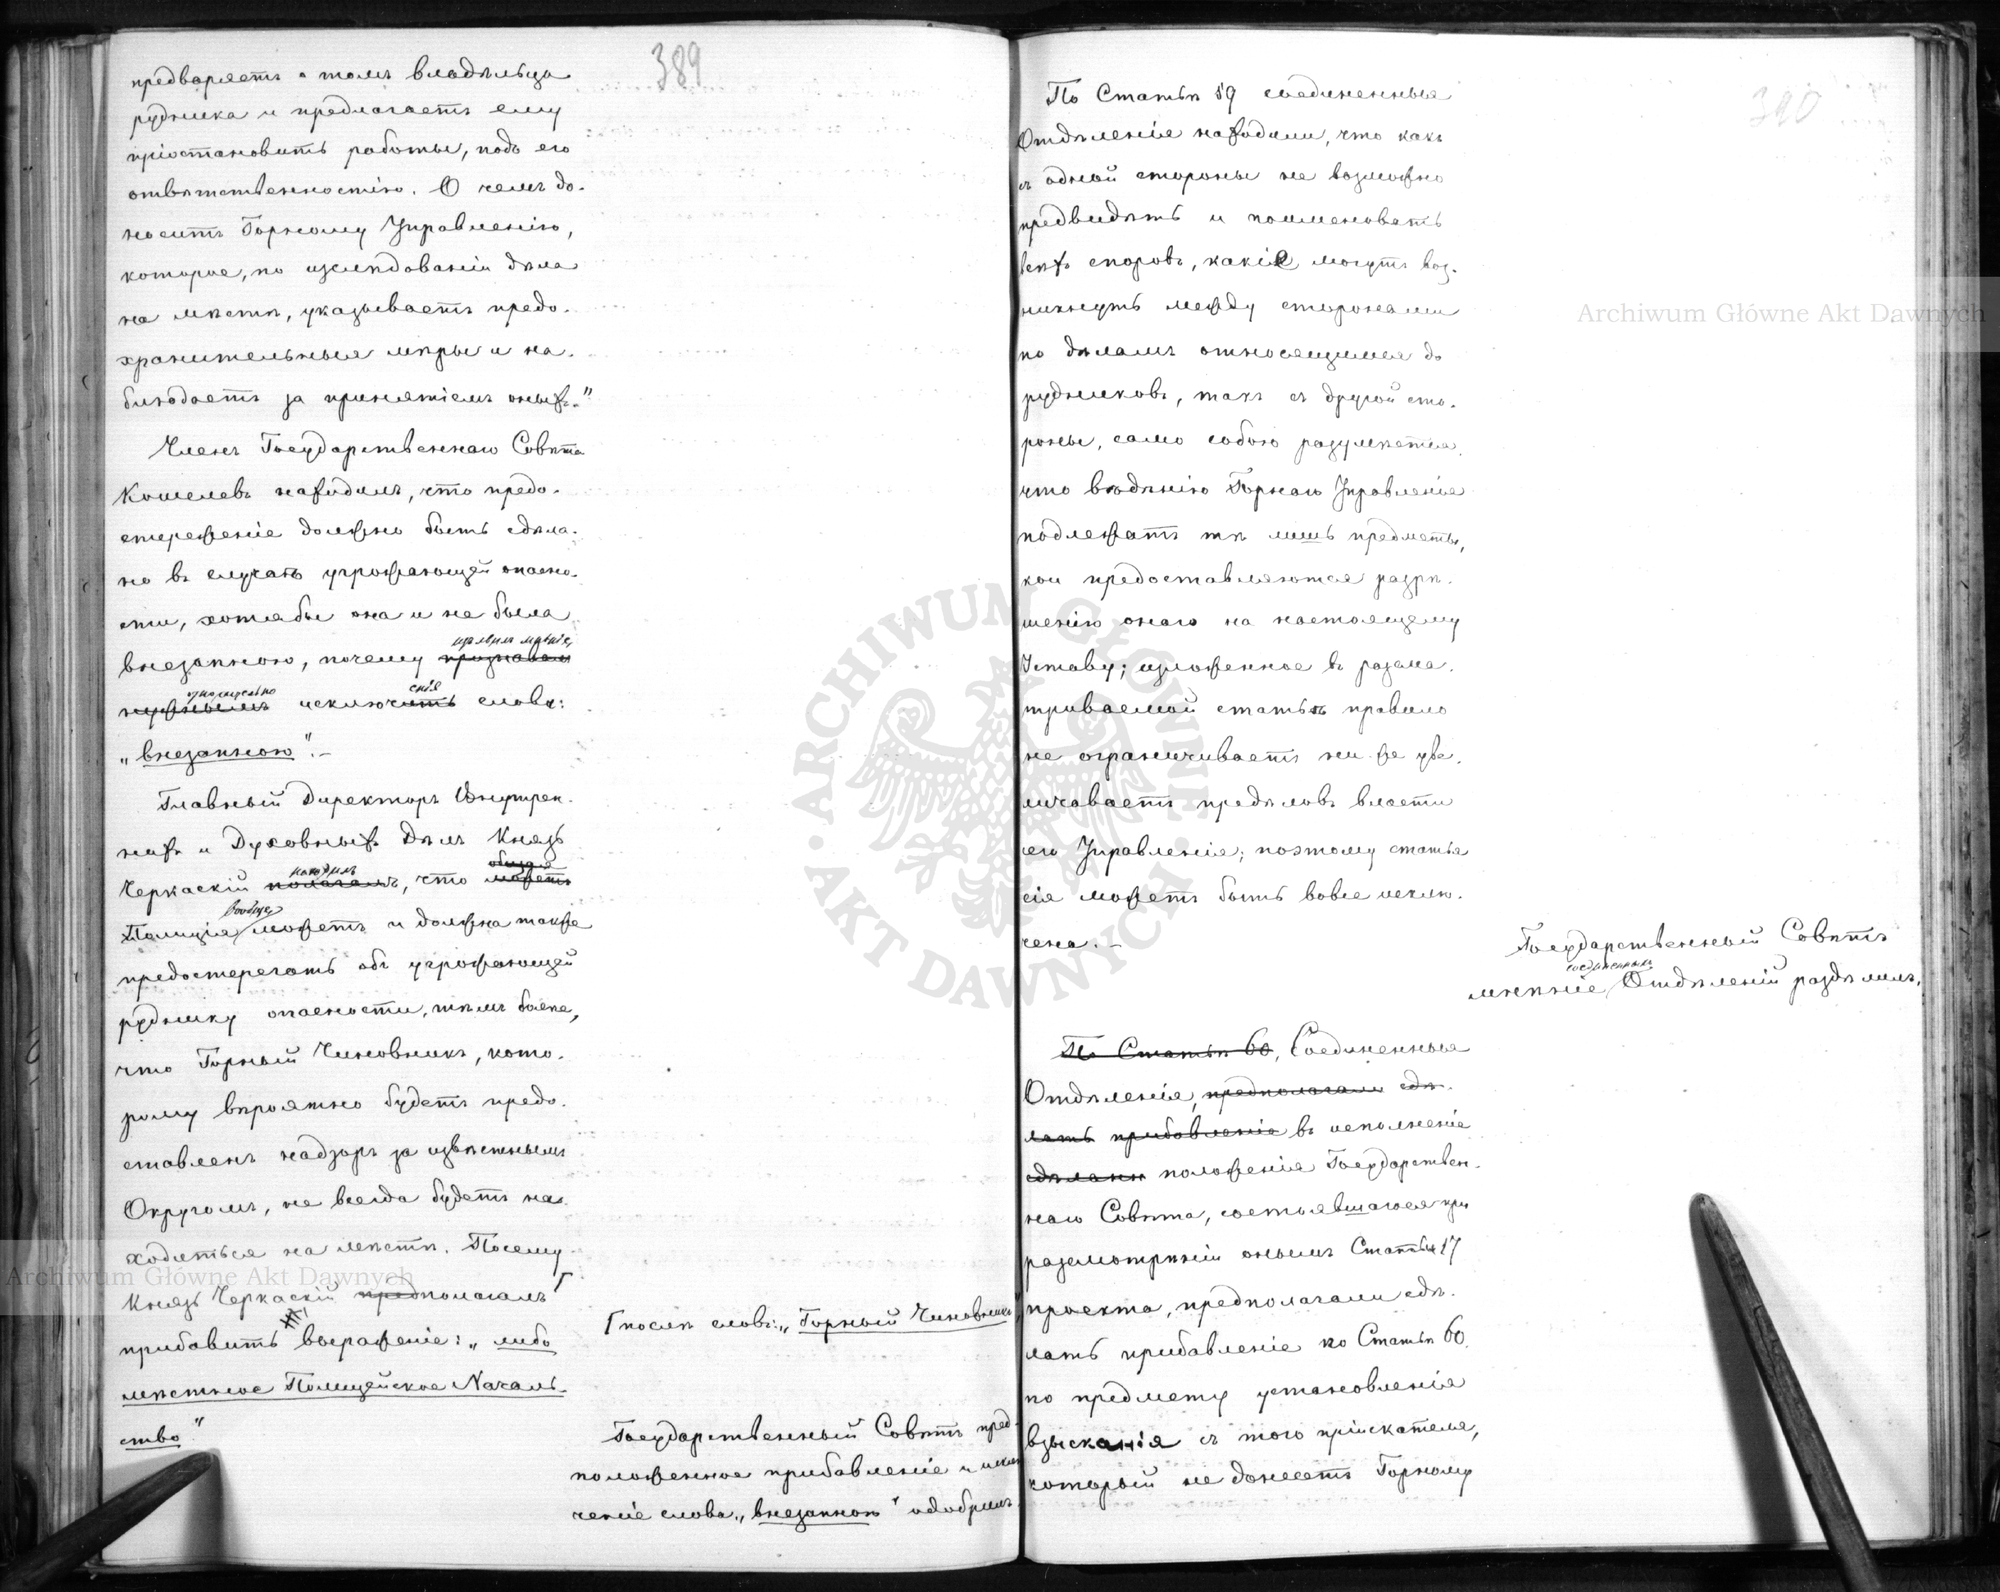 389
предваряетъ о томъ владѣльца
рудника и предлагаетъ ему
пріостановить работы, подъ его
отвѣтственностію. О чемъ до-
носитъ Горному Управленію,
которое, по изслѣдованіи дѣла
на мѣстѣ, указываетъ предо-
хранительныя мѣры и на-
блюдаетъ за принятіемъ оныхъ."
Членъ Государственнаго Совѣта
Кошелевъ находилъ, что предо-
стереженіе должно быть сдѣла-
но въ случаѣ угрожающей опасно-
сти, хотя бы она и не была
изъявилъ мнѣніе,
внезапною, почему признавалъ
относительно снія
нужнымъ исключить слова:
„внезапною".—
Главный Директоръ Внутрен-
нихъ и Духовныхъ Дѣлъ Князь
находилъ общая
Черкаскій полагалъ, что можетъ
вообще
Полиція можетъ и должна также
предостерегать объ угрожающей
руднику опасности, тѣмъ болѣе,
что Горный Чиновникъ, кото-
рому вѣроятно будетъ предо-
ставленъ надзоръ за извѣстнымъ
Округомъ, не всегда будетъ на-
ходиться на мѣстѣ. Посему
Князь Черкаскій предполагалъ
прибавить выраженіе: „либо
мѣстное Полицейское Началь-
ство"
послѣ словъ: „Горный Чиновникъ"
Государственный Совѣтъ пред-
положенное прибавленіе и исклю-
ченіе слова „внезапною" одобрилъ.
390
По Статьѣ 59 соединенныя
Отдѣленія находили, что какъ
съ одной стороны не возможно
предвидѣть и поименовать
всѣхъ споровъ, какіе могутъ воз-
никнуть между сторонами
по дѣламъ относящимся до
рудниковъ, такъ съ другой сто-
роны, само собою разумѣется,
что вѣдѣнію Горнаго Управленія
подлежатъ тѣ лишь предметы,
кои предоставляются разрѣ-
шенію онаго на настоящему
Уставу; изложенное въ разсма-
триваемой статьѣ правило
не ограничиваетъ ни же уве-
личиваетъ предѣловъ власти
его Управленія; поэтому статья
сія можетъ быть вовсе исклю-
чена.—
Государственный Совѣтъ
соединенныхъ
мнѣніе Отдѣленій раздѣлилъ.
По Статьѣ 60, Соединенныя
Отдѣленія, предполагали сдѣ-
лать прибавленіе въ исполненіе
сдѣлали положенія Государствен-
наго Совѣта, состоявшагося при
разсмотрѣніи онымъ Статьи 17
проекта, предполагали сдѣ-
лать прибавленіе ко Статьѣ 60
по предмету установленія
взысканія съ того пріискателя,
который не донесетъ Горному
Archiwum Główne Akt Dawnych
Archiwum Główne Akt Dawnych
ARCHIWUM GŁÓWNE AKT DAWNYCH